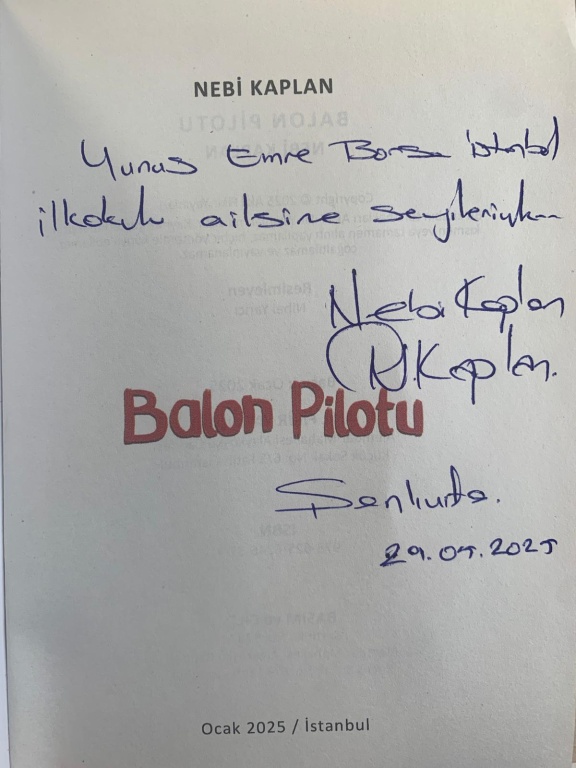 NEBİ KAPLAN
Yunus Emre Borsa İstanbul
ilkokulu ailsine sevgilerimle
Nebi Kaplan
N.Kaplan.
Balon Pilotu
Şanlıurfa.
29.04.2025
Ocak 2025 / İstanbul